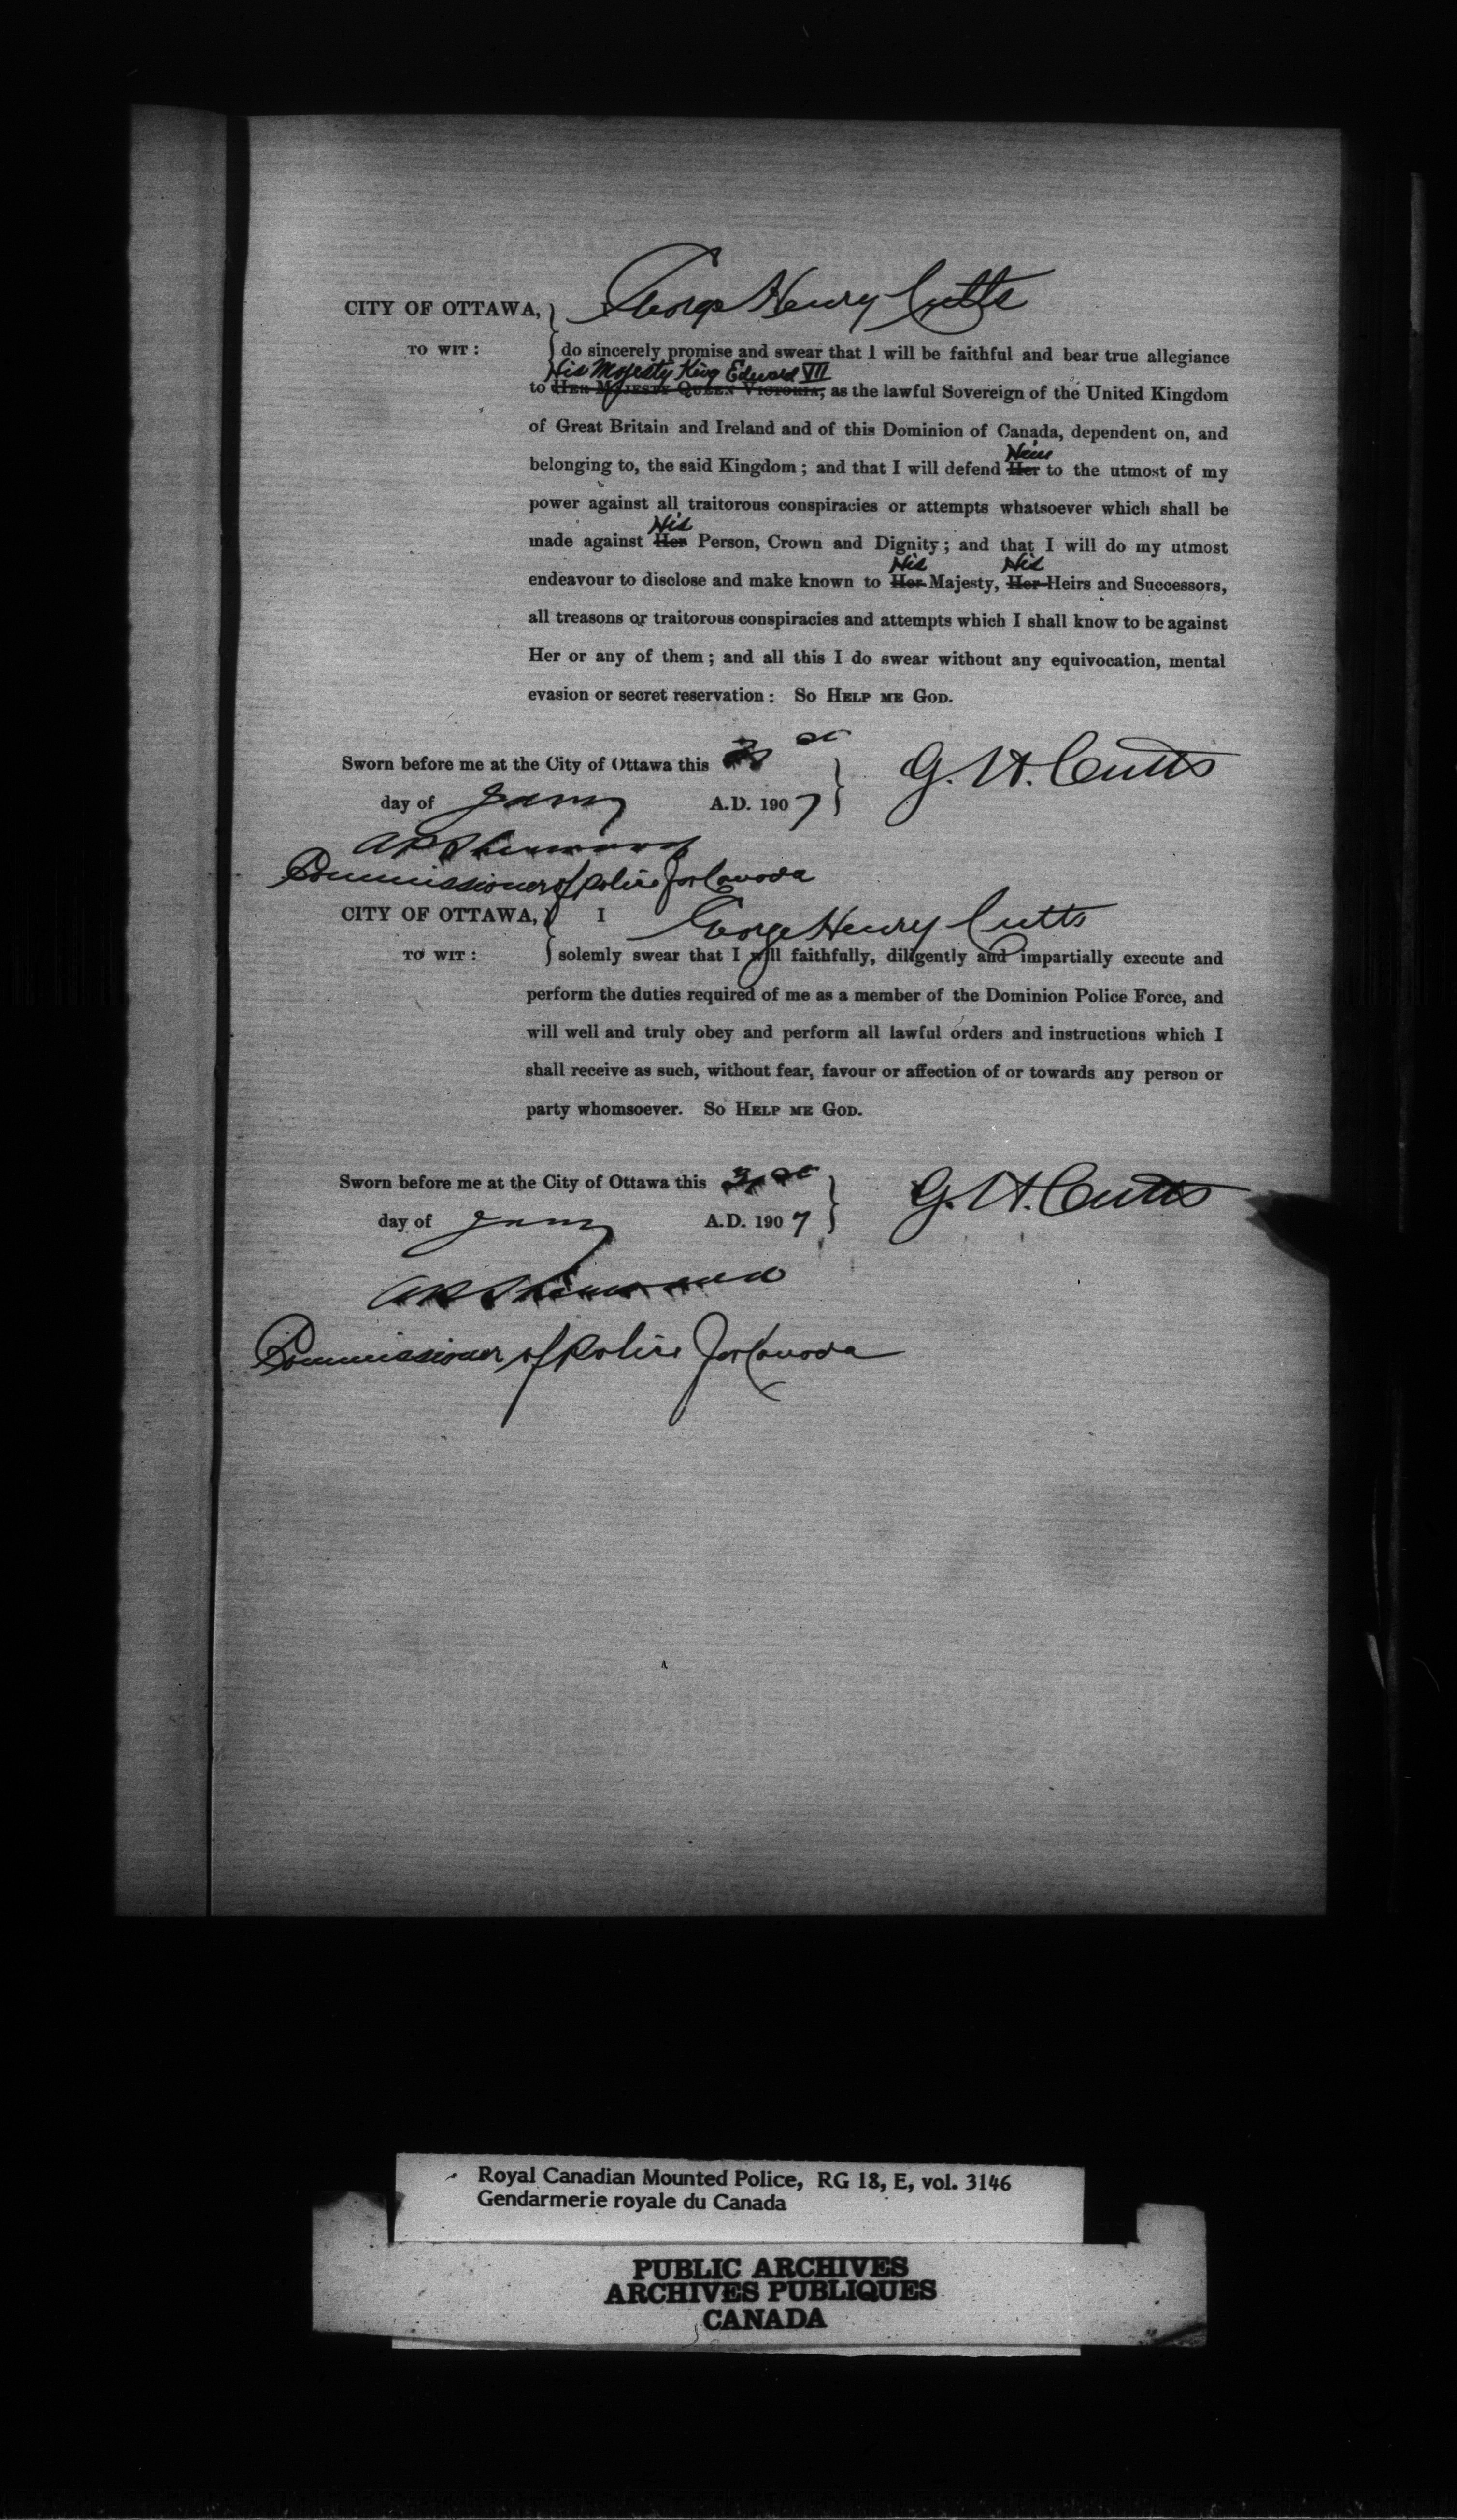 CITY OF OTTAWA, George Henry Cutts
TO WIT : do sincerely promise and swear that I will be faithful and bear true allegiance
His Majesty King Edward VII
to HER MAJESTY QUEEN VICTORIA, as the lawful Sovereign of the United Kingdom
of Great Britain and Ireland and of this Dominion of Canada, dependent on, and
Him
belonging to, the said Kingdom ; and that I will defend Her to the utmost of my
power against all traitorous conspiracies or attempts whatsoever which shall be
His
made against Her Person, Crown and Dignity ; and that I will do my utmost
His His
endeavour to disclose and make known to Her Majesty, Her Heirs and Successors,
all treasons or traitorous conspiracies and attempts which I shall know to be against
Her or any of them ; and all this I do swear without any equivocation, mental
evasion or secret reservation : SO HELP ME GOD.
Sworn before me at the City of Ottawa this G. H. Cutts
day of Jany A.D. 1907
A P Sherwood
Commissioner of Police for Canada
CITY OF OTTAWA, I George Henry Cutts
TO WIT : solemly swear that I will faithfully, diligently and impartially execute and
perform the duties required of me as a member of the Dominion Police Force, and
will well and truly obey and perform all lawful orders and instructions which I
shall receive as such, without fear, favour or affection of or towards any person or
party whomsoever. SO HELP ME GOD.
Sworn before me at the City of Ottawa this G. H. Cutts
day of Jany A.D. 1907
A P Sherwood
Commissioner of Police for Canada
Royal Canadian Mounted Police, RG 18, E, vol. 3146
Gendarmerie royale du Canada
PUBLIC ARCHIVES
ARCHIVES PUBLIQUES
CANADA